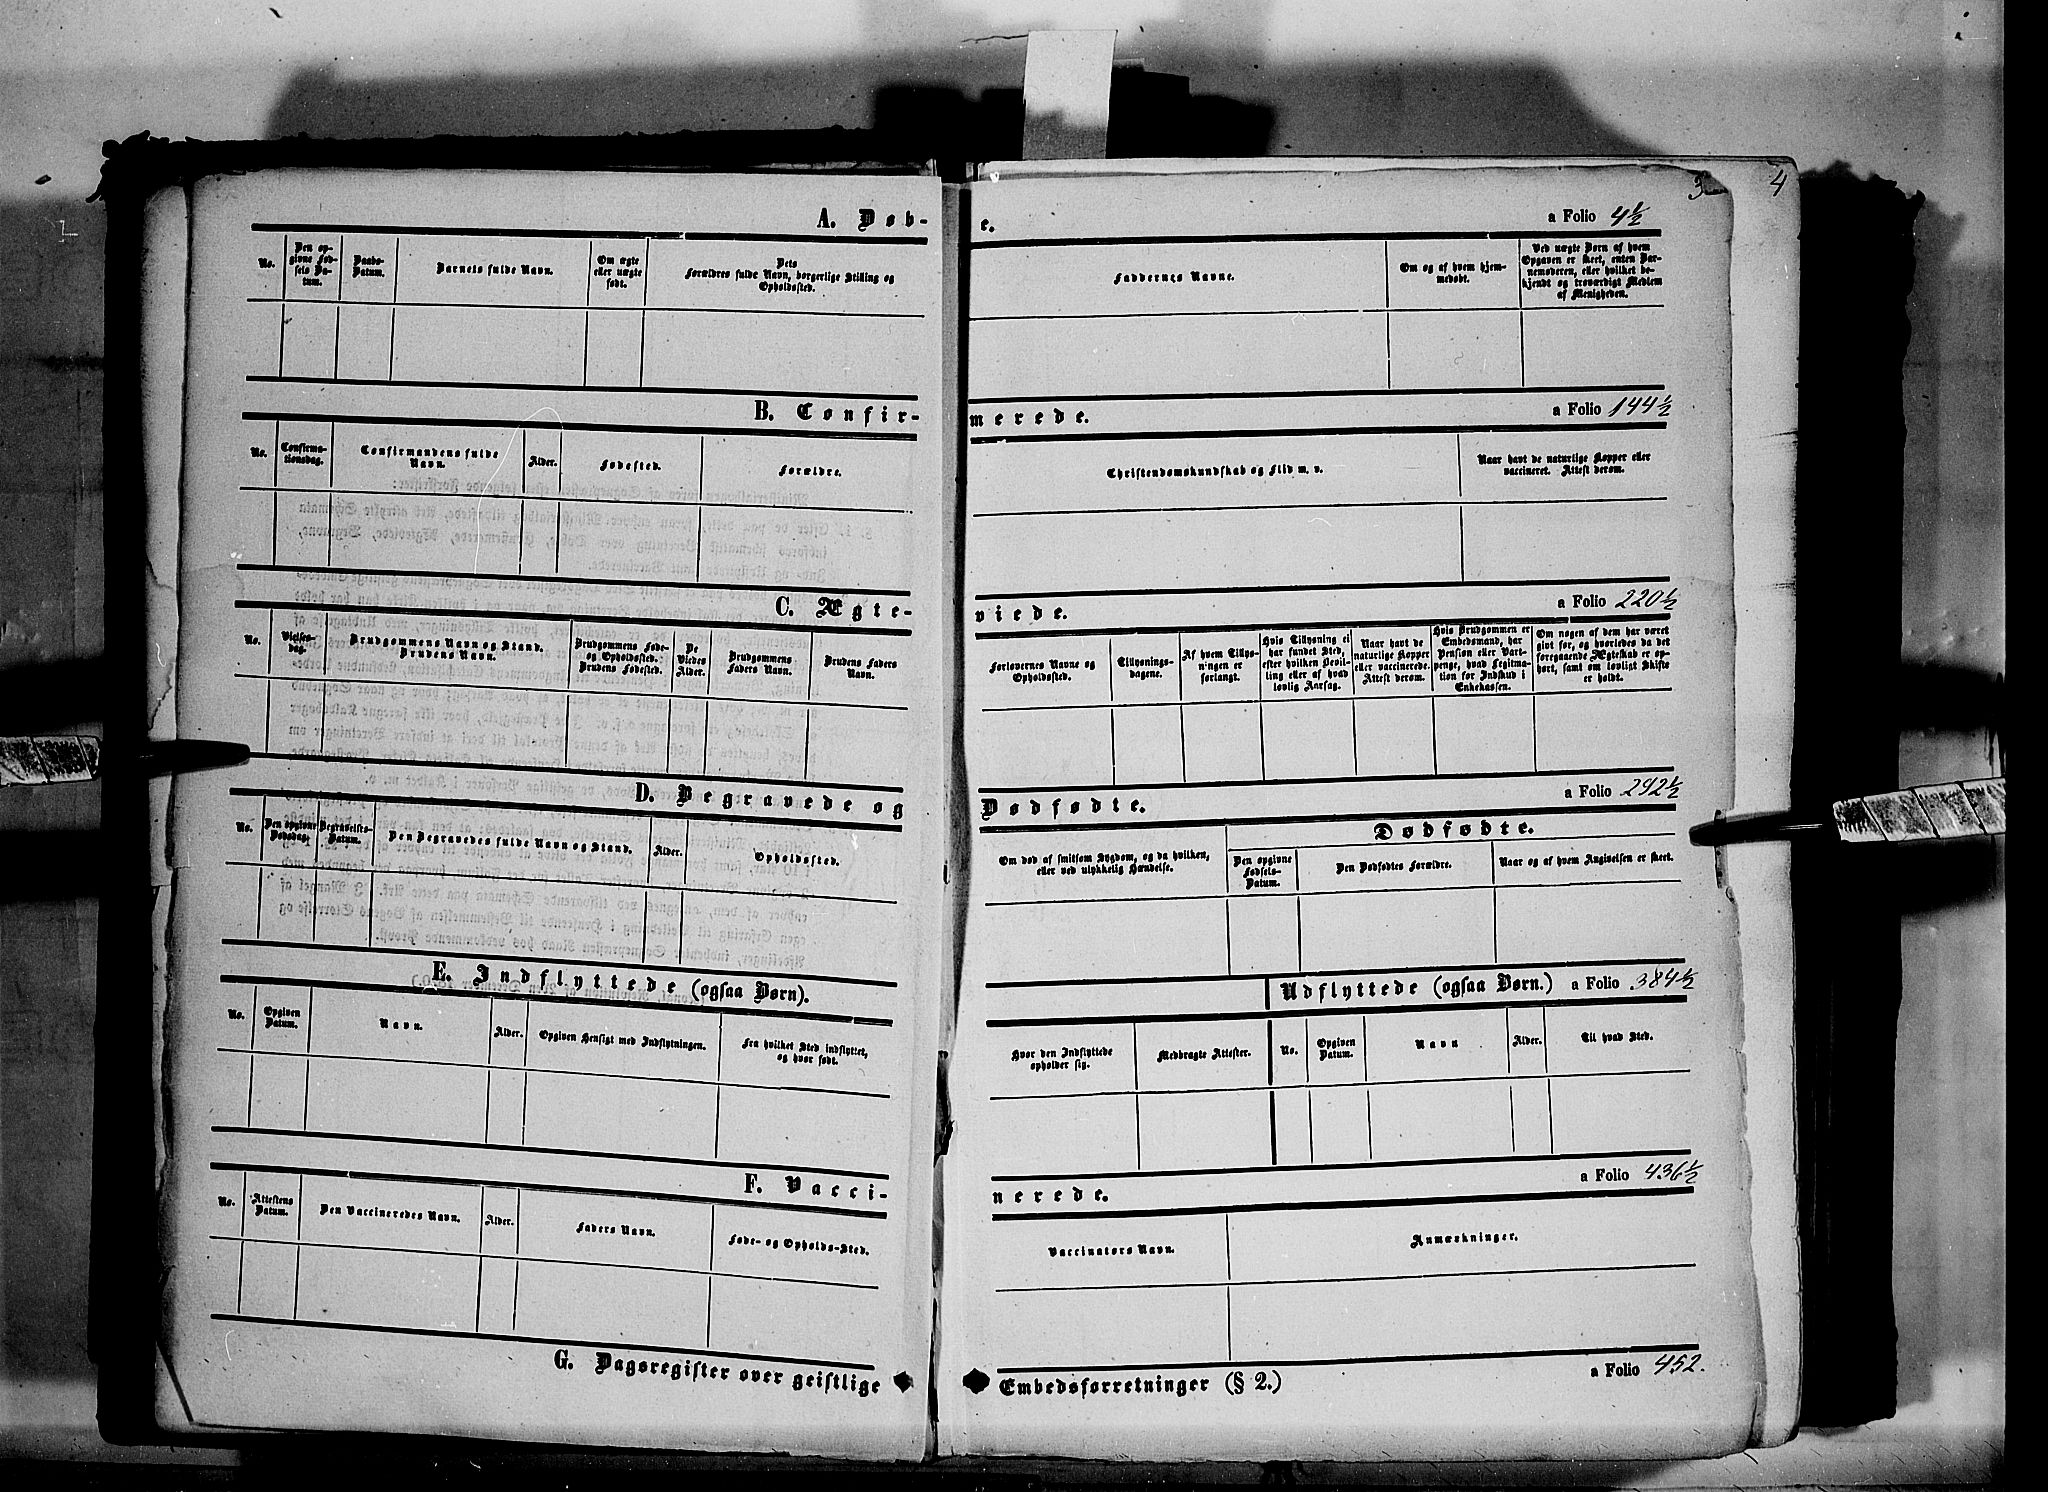 3 4
A. Døb-
e.
a Folio 4½
No.
Den op-
givne Fød-
sels Da-
tum.
Daabs-
Datum.
Barnets fulde Navn.
Om ægte
eller uægte
født.
Dets
Forældres fulde Navn, borgerlige Stilling og
Opholdssted.
Faddernes Navne.
Om og af hvem hjem-
medøbt.
Ved uægte Børn af hvem
Opgaven er skeet, enten Bar-
nemoderen, eller hvilket be-
kjendt og troværdigt Medlem
af Menigheden.
B. Confir-
merede.
a Folio 144½
No.
Confirma-
tionsdag.
Confirmandens fulde
Navn.
Alder.
Fødested.
Forældre.
Christendomskundskab og Flid m. v.
Naar havt de naturlige Kopper eller
vaccineret. Attest derom.
C. Ægte-
viede.
a Folio 220½
No.
Vielses-
dag.
Brudgommens Navn og Stand.
Brudens Navn.
Brudgommens Føde-
og Opholdssted.
Brudens Fødested.
De
Viedes
Alder.
Brudgommens
Faders Navn.
Brudens Faders
Navn.
Forlovernes Navne og
Opholdssted.
Tillysnings-
dagene.
Af hvem Tillys-
ningen er
forlangt.
Hvis Tillysning ei
har fundet Sted,
efter hvilken Bevil-
ling eller af hvad
lovlig Aarsag.
Naar havt de
naturlige Kopper
eller vaccinerede.
Attest derom.
Hvis Brudgommen er
Embedsmand, har
Pension eller Vart-
penge, hvad Legitima-
tion for Indskud i
Enkekassen.
Om nogen af dem har været
givt før, og hvorledes da det
foregaaende Ægteskab er op-
hørt, samt om lovligt Skifte
er holdt.
D. Begravede og
Dødfødte.
a Folio 292½
No.
Den opgivne
Dødsdag.
Begravelses-
Datum.
Den Begravedes fulde Navn og Stand.
Alder.
Opholdssted.
Om død af smitsom Sygdom, og da hvilken,
eller ved ulykkelig Hændelse.
Dødfødte.
Den opgivne
Fødsels-
Datum.
Den Dødfødtes Forældre.
Naar og af hvem Angivelsen er skeet.
E. Indflyttede (ogsaa Børn).
Udflyttede (ogsaa Børn.) a Folio 384½
No.
Opgiven
Datum.
Navn.
Alder.
Opgiven Hensigt med Indflytningen.
Fra hvilket Sted indflyttet,
og hvor født.
Hvor den Indflyttede
opholder sig.
Medbragte Attester.
No.
Opgiven
Datum.
Navn
Alder.
Til hvad Sted.
F. Vacci-
nerede.
a Folio 436½
No.
Attestens
Datum.
Den Vaccineredes Navn.
Alder.
Faders Navn.
Føde- og Opholds-Sted.
Vaccinators Navn.
Anmærkninger.
G. Dagsregister over geistlige
Embedsforretninger (§ 2.)
a Folio 452.